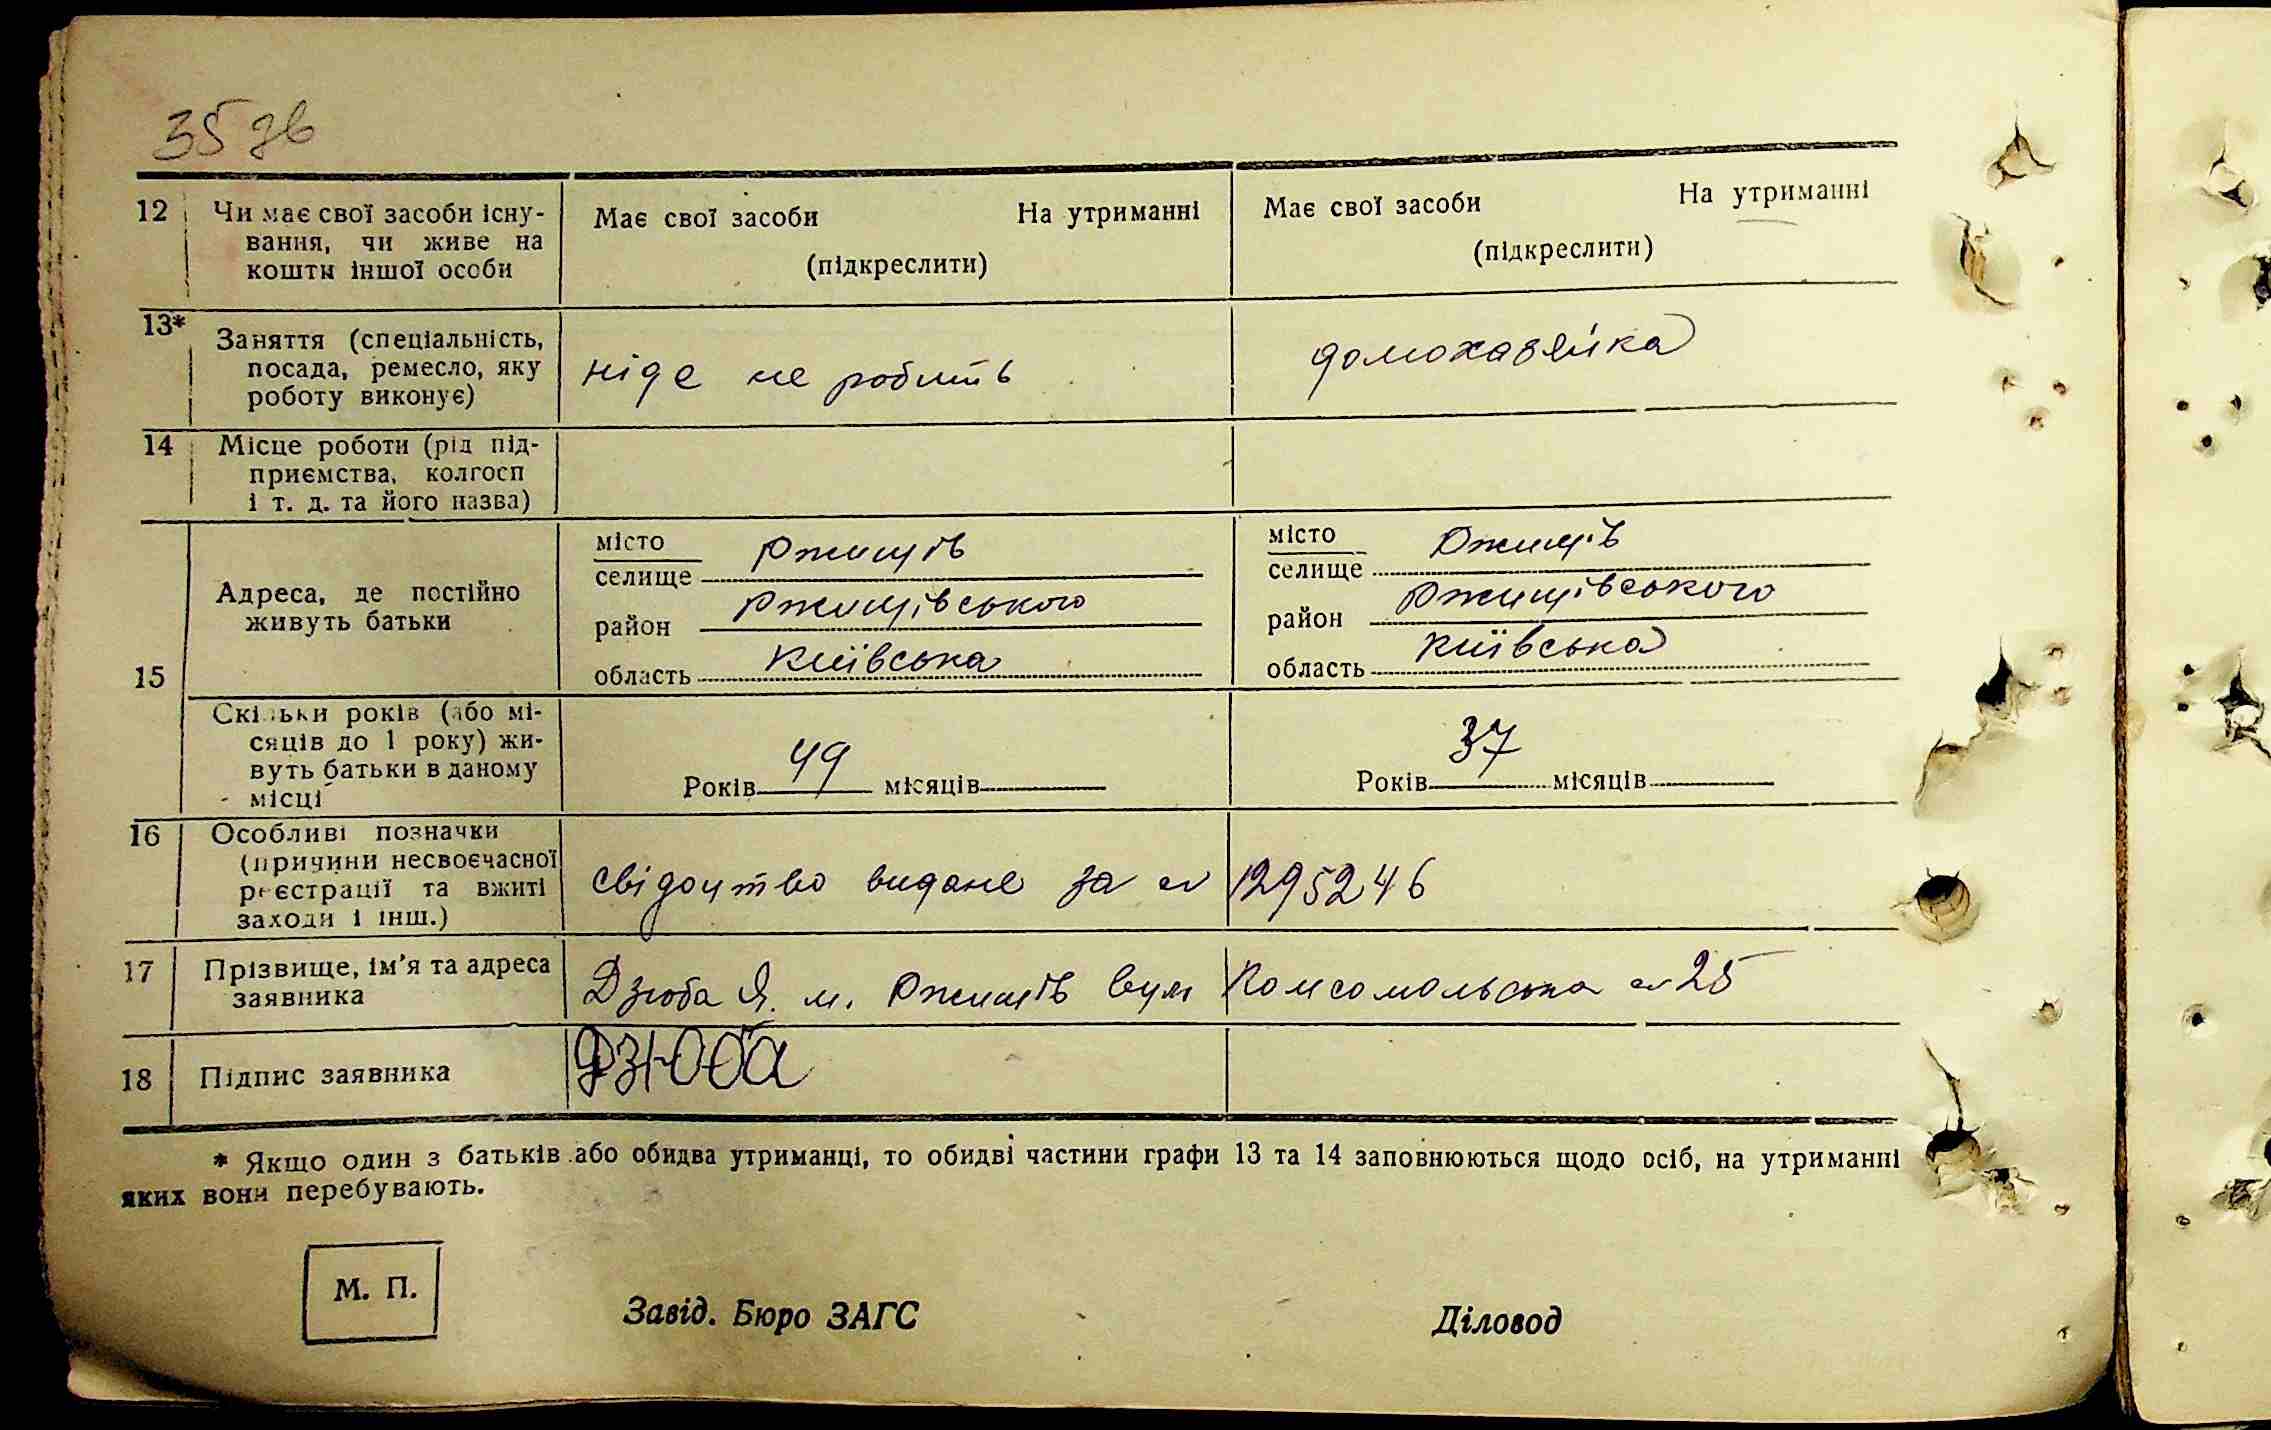 35 зв
12 Чи має свої засоби існу-
вання, чи живе на
кошти іншої особи
Має свої засоби На утриманні
(підкреслити)
Має свої засоби На утриманні
(підкреслити)
13* Заняття (спеціальність,
посада, ремесло, яку
роботу виконує)
ніде не робить
домохазяйка
14 Місце роботи (рід під-
приємства, колгосп
і т. д. та його назва)
15
Адреса, де постійно
живуть батьки
місто Ржищів
селище
район Ржищівського
область Київська
місто Ржищів
селище
район Ржищівського
область Київська
Скільки років (або мі-
сяців до 1 року) жи-
вуть батьки в даному
місці
Років 49 місяців
Років 37 місяців
16 Особливі позначки
(причини несвоєчасної
реєстрації та вжиті
заходи і інш.)
свідоцтво видане за № 1295246
17 Прізвище, ім'я та адреса
заявника
Дзюба Я. м. Ржищів вул Комсомольська № 25
18 Підпис заявника
Дзюба
* Якщо один з батьків або обидва утриманці, то обидві частини графи 13 та 14 заповнюються щодо осіб, на утриманні
яких вони перебувають.
М. П.
Завід. Бюро ЗАГС Діловод